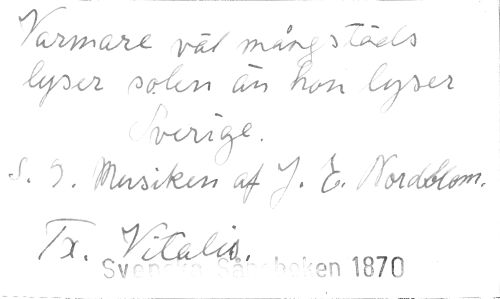 Varmare väl mångstäds
lyser solen än hon lyser
Sverige.
S. S. Musiken af J. E. Nordblom.
Tx. Vitalis.
Svenska Sångboken 1870